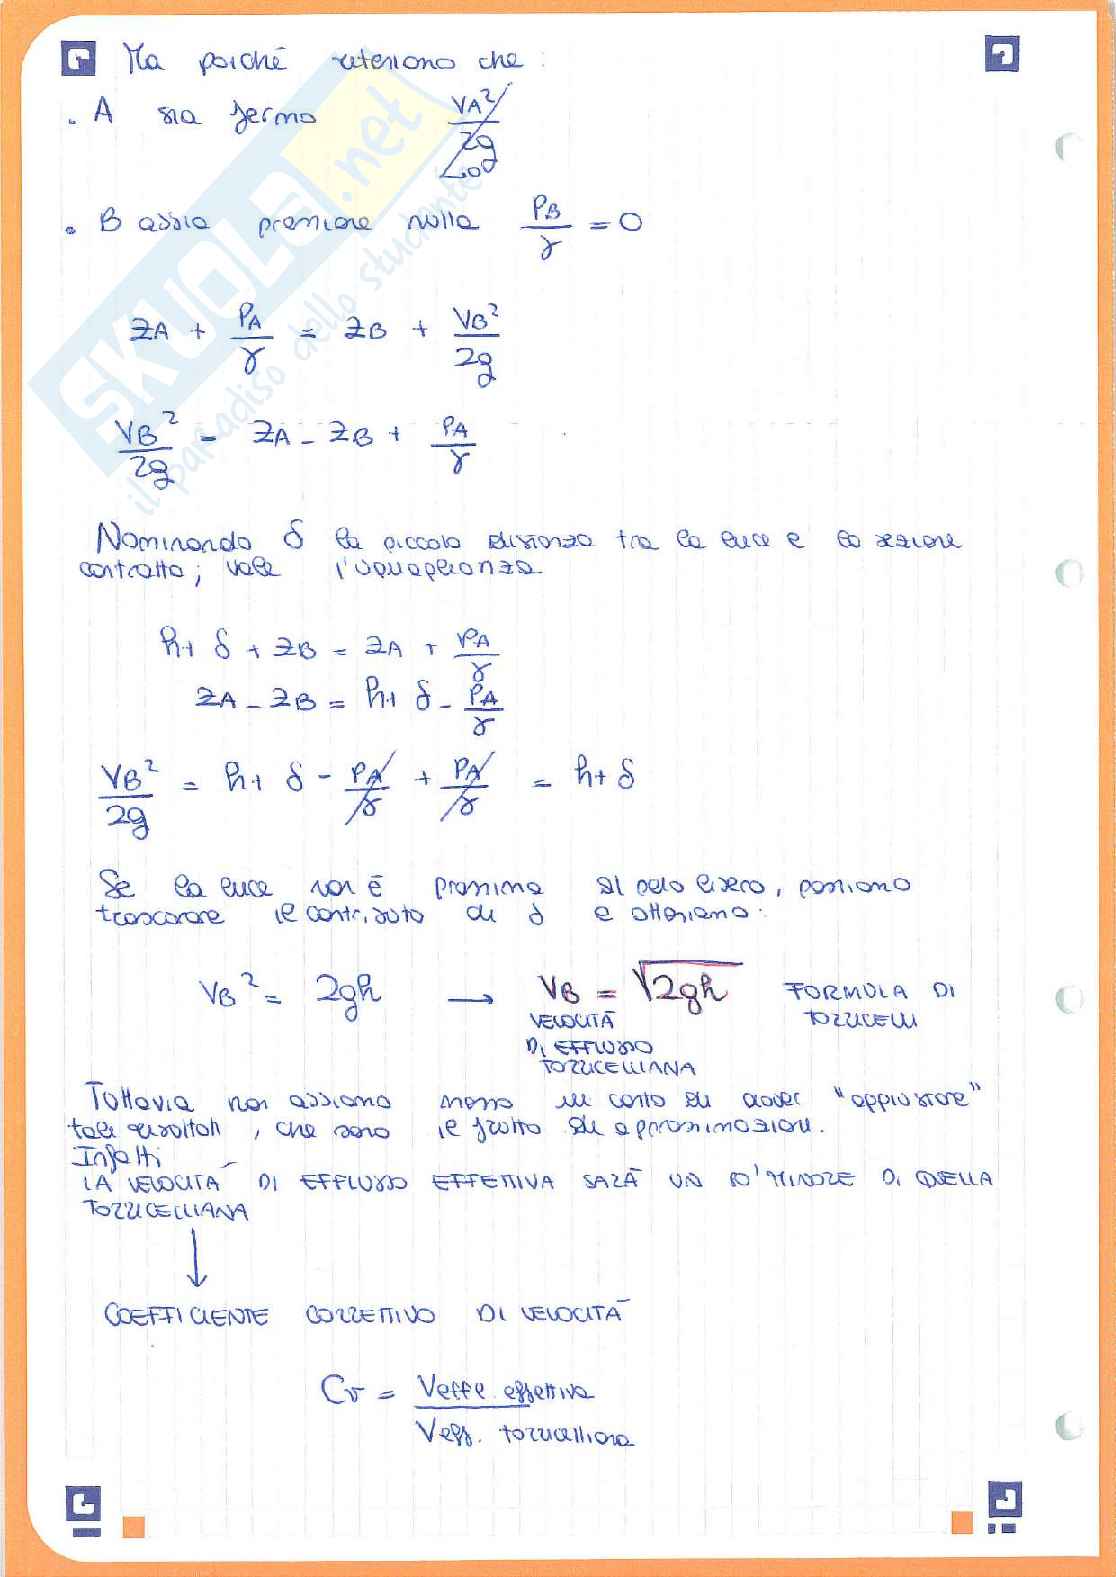 Ma poiché riteniamo che :
. A sia fermo VA²/2g → 0
. B abbia pressione nulla PB/γ = 0
ZA + PA/γ = ZB + VB²/2g
VB²/2g = ZA - ZB + PA/γ
Nominando δ la piccola distanza tra la luce e la sezione
contratta; vale l'uguaglianza.
h + δ + ZB = ZA + PA/γ
ZA - ZB = h + δ - PA/γ
VB²/2g = h + δ - PA/γ + PA/γ = h + δ
Se la luce non è prossima al pelo libero, possiamo
trascurare il contributo di δ e otteniamo:
VB² = 2gh → VB = √2gh FORMULA DI
TORRICELLI
VELOCITÀ
DI EFFLUSSO
TORRICELLIANA
Tuttavia noi abbiamo messo in conto di dover "aggiustare"
tali risultati, che sono il frutto di approssimazioni.
Infatti
LA VELOCITÀ DI EFFLUSSO EFFETTIVA SARÀ UN PO' MINORE DI QUELLA
TORRICELLIANA
↓
COEFFICIENTE CORRETTIVO DI VELOCITÀ
Cv = Veffl. effettiva / Veff. torricelliana
SKUOLA.net
il paradiso dello studente